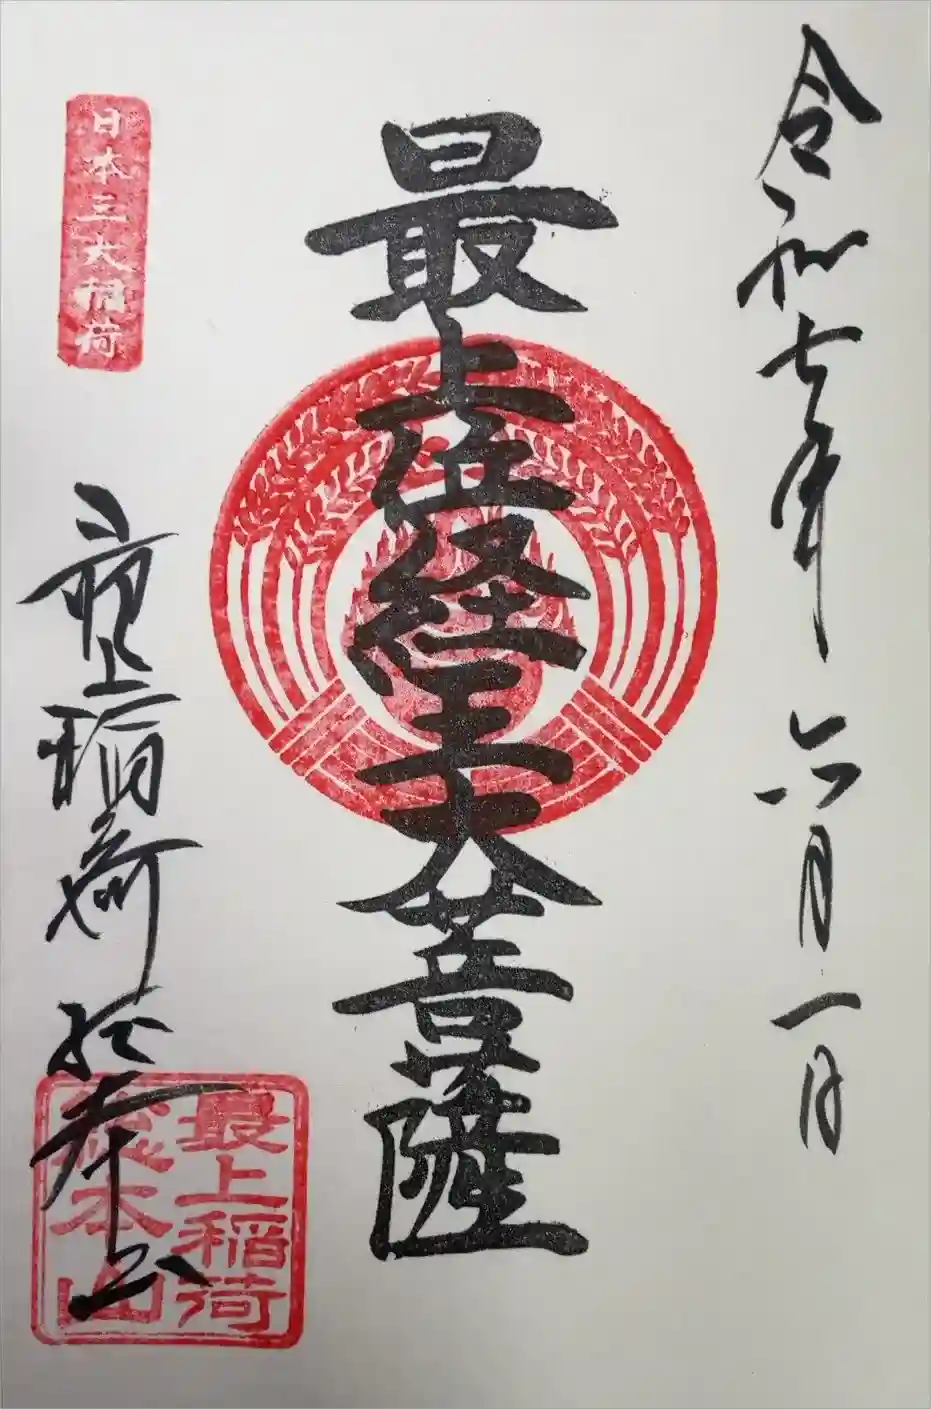 令和七年 六月一日
最上位経王大菩薩
日本三大稲荷
最上稲荷総本山
最上稲荷総本山